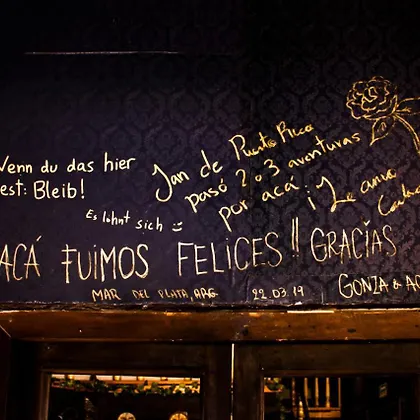 Wenn du das hier
est: Bleib!
Es lohnt sich :)
Jan de Puerto Rico
pasó 2 o 3 aventuras
por acá ¡Le amo
ACÁ FUIMOS FELICES!! GRACIAS
MAR DEL PLATA, ARG 22.03.19 GONZA &